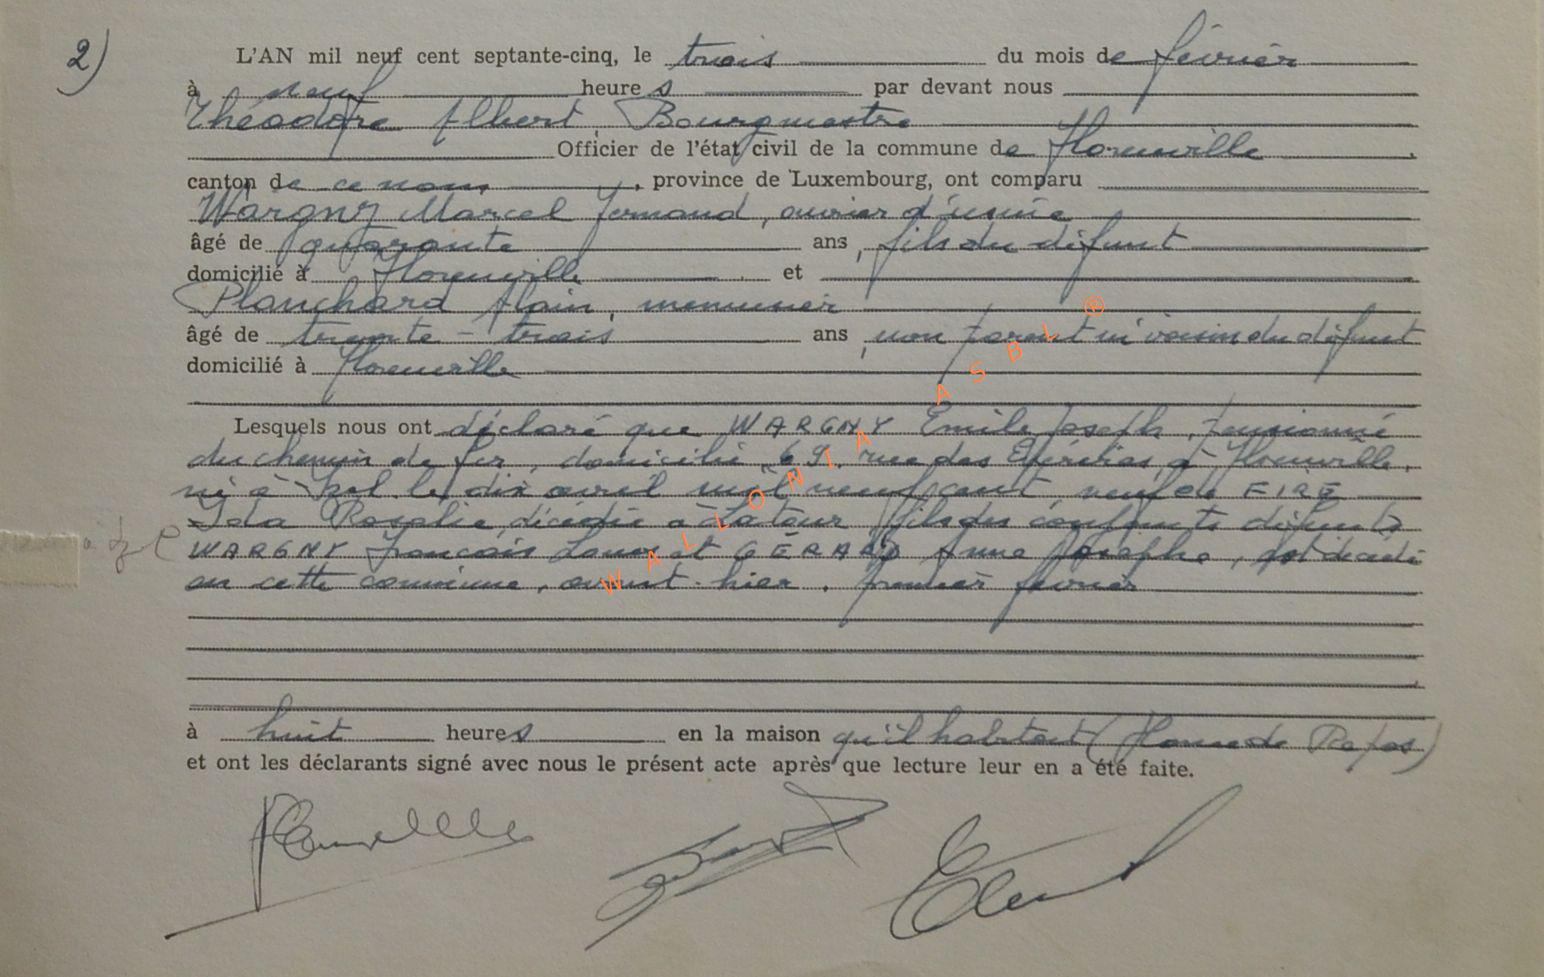 2)
L'AN mil neuf cent septante-cinq, le trois du mois de février
à neuf heures par devant nous
Théodore Albert, Bourgmestre
Officier de l'état civil de la commune de Florenville
canton de ce nom, province de Luxembourg, ont comparu
Wargny Marcel Fernand, ouvrier d'usine
âgé de quarante ans, fils du défunt
domicilié à Florenville et
Planchard Alain, menuisier
âgé de trente-trois ans, non parent ni voisin du défunt
domicilié à Florenville
Lesquels nous ont déclaré que WARGNY Emile Joseph, pensionné
du chemin de fer, domicilié 69, rue des à Florenville,
né à Izel le dix avril mil neuf cent, veuf de
Rosalie, décédée à fils des conjoints défunts
WARGNY François et GÉRARD Anne Josèphe, est décédé
en cette commune, avant-hier, premier février
à huit heures en la maison qu'il habitait (Home de Repos)
et ont les déclarants signé avec nous le présent acte après que lecture leur en a été faite.
WALLONIA ASBL ®